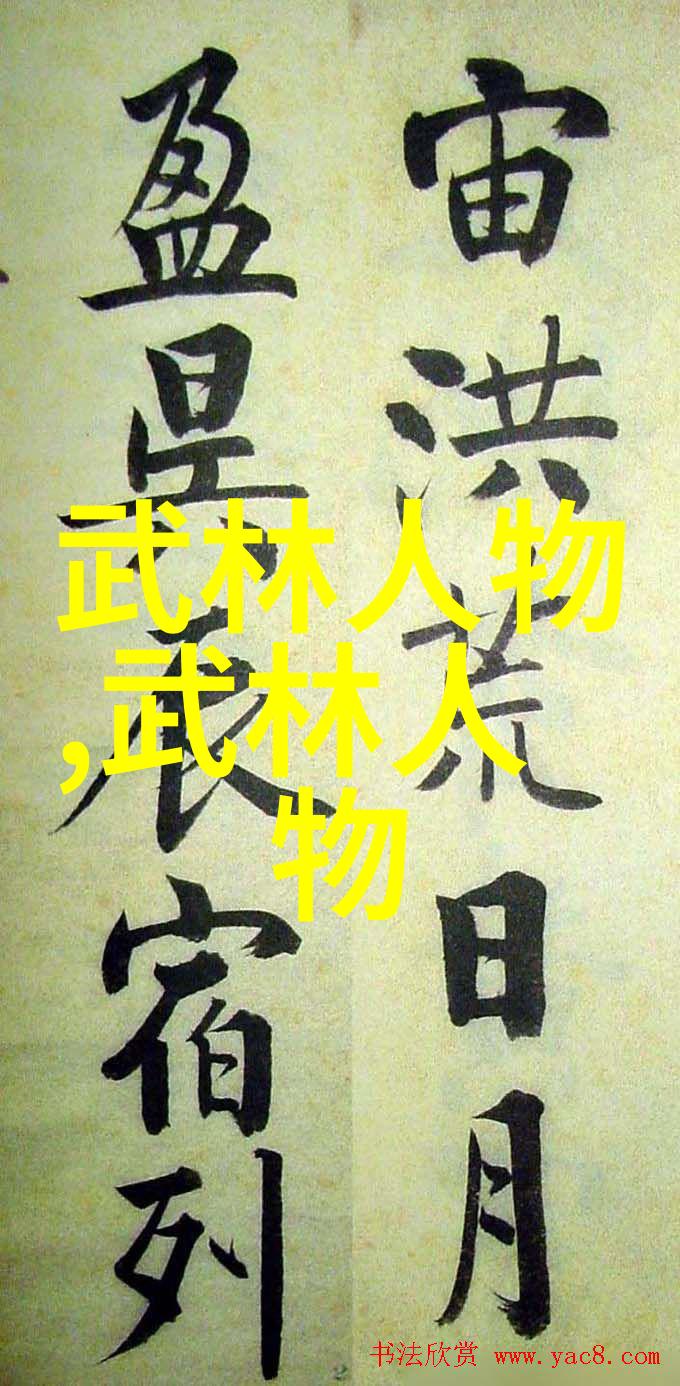 宙洪荒日月
盈昃辰宿列
武林人物
,武林人
物
书法欣赏 www.yac8.com